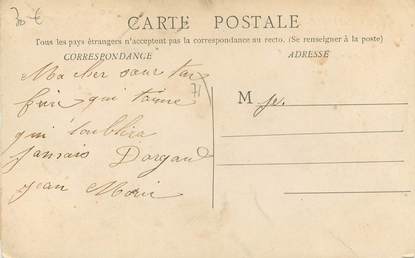 30 €
CARTE POSTALE
Tous les pays étrangers n'acceptent pas la correspondance au recto. (Se renseigner à la poste)
CORRESPONDANCE
ADRESSE
Ma cher sœur ton
frère qui t'aime
71
qui t'oublira
jamais Dorgand
jean Marie
M